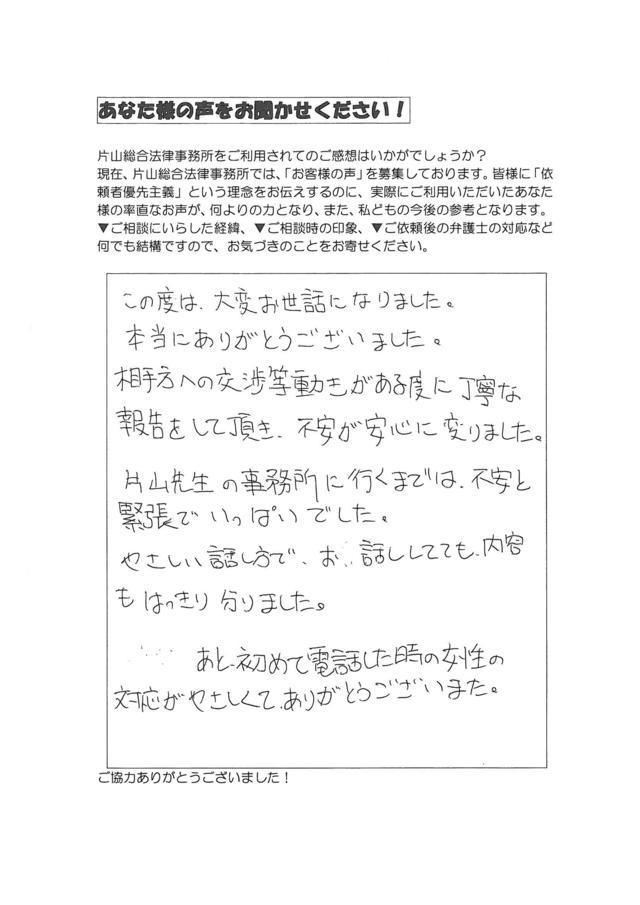 あなた様の声をお聞かせください！
片山総合法律事務所をご利用されてのご感想はいかがでしょうか？
現在、片山総合法律事務所では、「お客様の声」を募集しております。皆様に「依
頼者優先主義」という理念をお伝えするのに、実際にご利用いただいたあなた
様の率直なお声が、何よりの力となり、また、私どもの今後の参考となります。
▼ご相談にいらした経緯、▼ご相談時の印象、▼ご依頼後の弁護士の対応など
何でも結構ですので、お気づきのことをお寄せください。
この度は、大変お世話になりました。
本当にありがとうございました。
相手方への交渉等動きがある度に丁寧な
報告をして頂き、不安が安心に変りました。
片山先生の事務所に行くまでは、不安と
緊張でいっぱいでした。
やさしい話し方で、お話ししてても、内容
もはっきり分りました。
あと、初めて電話した時の女性の
対応がやさしくて、ありがとうございまた。
ご協力ありがとうございました！